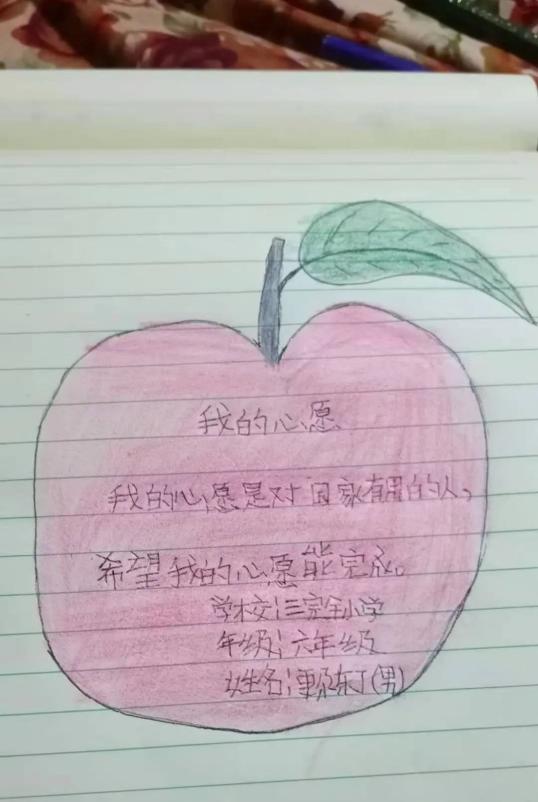 我的心愿
我的心愿是对国家有用的人,
希望我的心愿能完成。
学校:三完全小学
年级:六年级
姓名:(男)